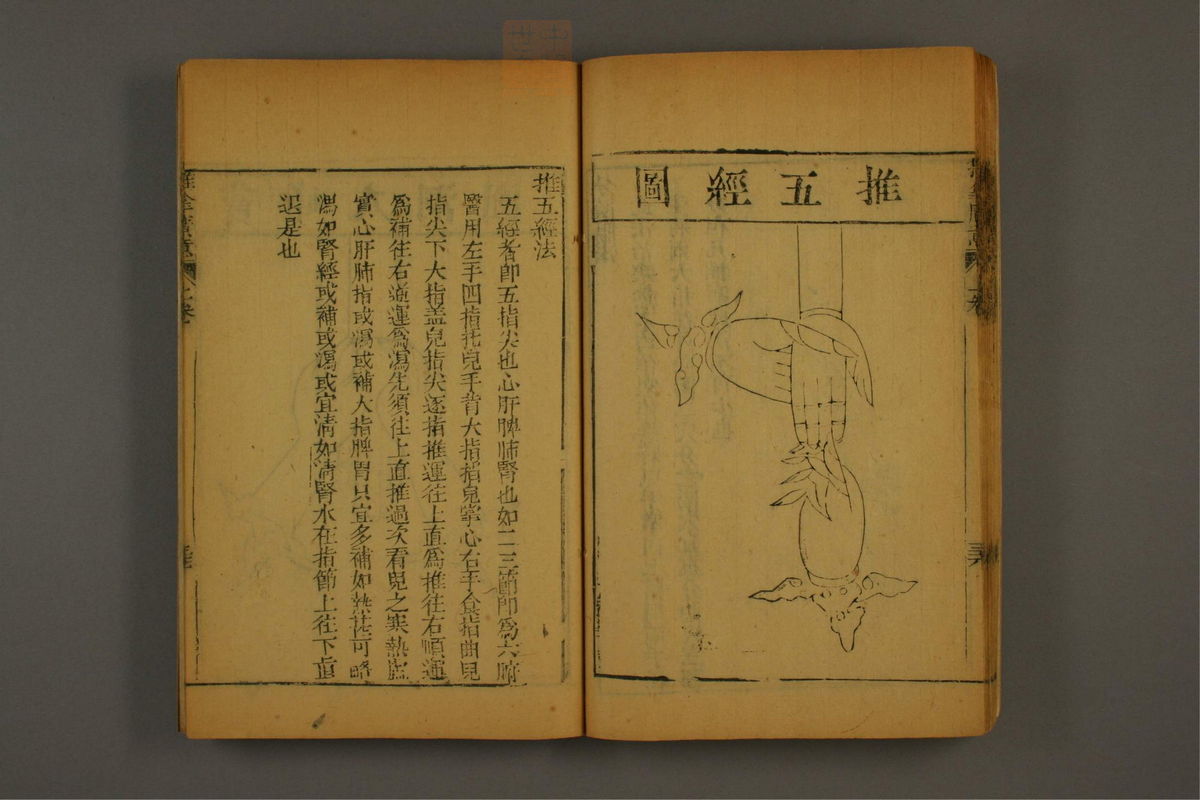 推五經圖
推五經法
五經者卽五指尖也心肝脾肺腎也如二三節卽爲六腑
醫用左手四指托兒手背大指掐兒掌心右手食指曲兒
指尖下大指盖兒指尖逐指推運往上直爲推往右順運
爲補往右逆運爲瀉先須往上直推過次看兒之寒熱虛
實心肝肺指或瀉或補大指脾胃只宜多補如熱甚可略
瀉如腎經或補或瀉或宜清如清腎水在指節上往下直
退是也